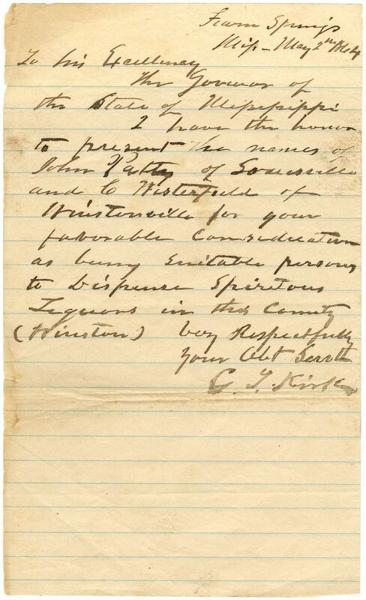 Fearn Springs
Miss - May 2nd 1864
To his Excellency
The Govenor of
the State of Mississippi
I have the honor
to present the names of
John Patty of Louisville
and C Westerfield of
Winstonville for your
favorable Consideration
as being Suitable persons
to Dispense Spiritous
Liquors in this County
(Winston) Very Respectfully
Your Obt Servt
Kirk